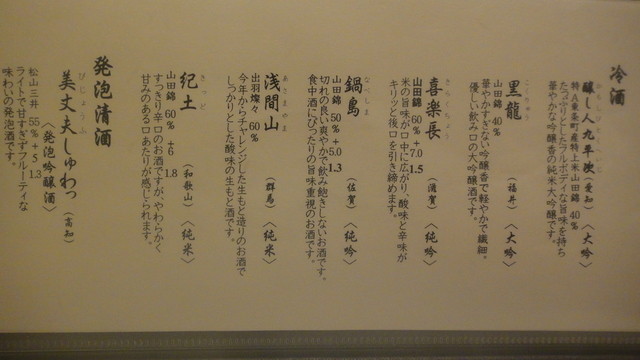 冷酒
醸し人九平次 (愛知) 〈大吟〉
特A東条町産特上米山田錦 40%
たっぷりとしたフルボディな旨味を持ち
華やかな吟醸香の純米大吟醸です。
こくりゅう
黒龍 (福井) 〈大吟〉
山田錦 40%
華やかすぎない吟醸香で軽やかで繊細。
優しい飲み口の大吟醸酒です。
きらくちょう
喜楽長 (滋賀) 〈純吟〉
山田錦 60% +7.0 1.5
米の旨味が口中に広がり、酸味と辛味が
キリッと後口を引き締めます。
なべしま
鍋島 (佐賀) 〈純吟〉
山田錦 50% +5.0 1.3
切れの良い爽やかで飲み飽きしないお酒です。
食中酒にぴったりの旨味重視のお酒です。
あさまやま
浅間山 (群馬) 〈純米〉
出羽燦々 60%
今年からチャレンジした生もと造りのお酒で
しっかりとした酸味の生もと酒です。
きっど
紀土 (和歌山) 〈純米〉
山田錦 60% +6 1.8
すっきり辛口のお酒ですが、やわらかく
甘みのある口あたりが感じられます。
発泡清酒
びじょうふ
美丈夫しゅわっ (高知)
〈発泡吟醸酒〉
松山三井 55% +5 1.3
ライトで甘すぎずフルーティな
味わいの発泡酒です。